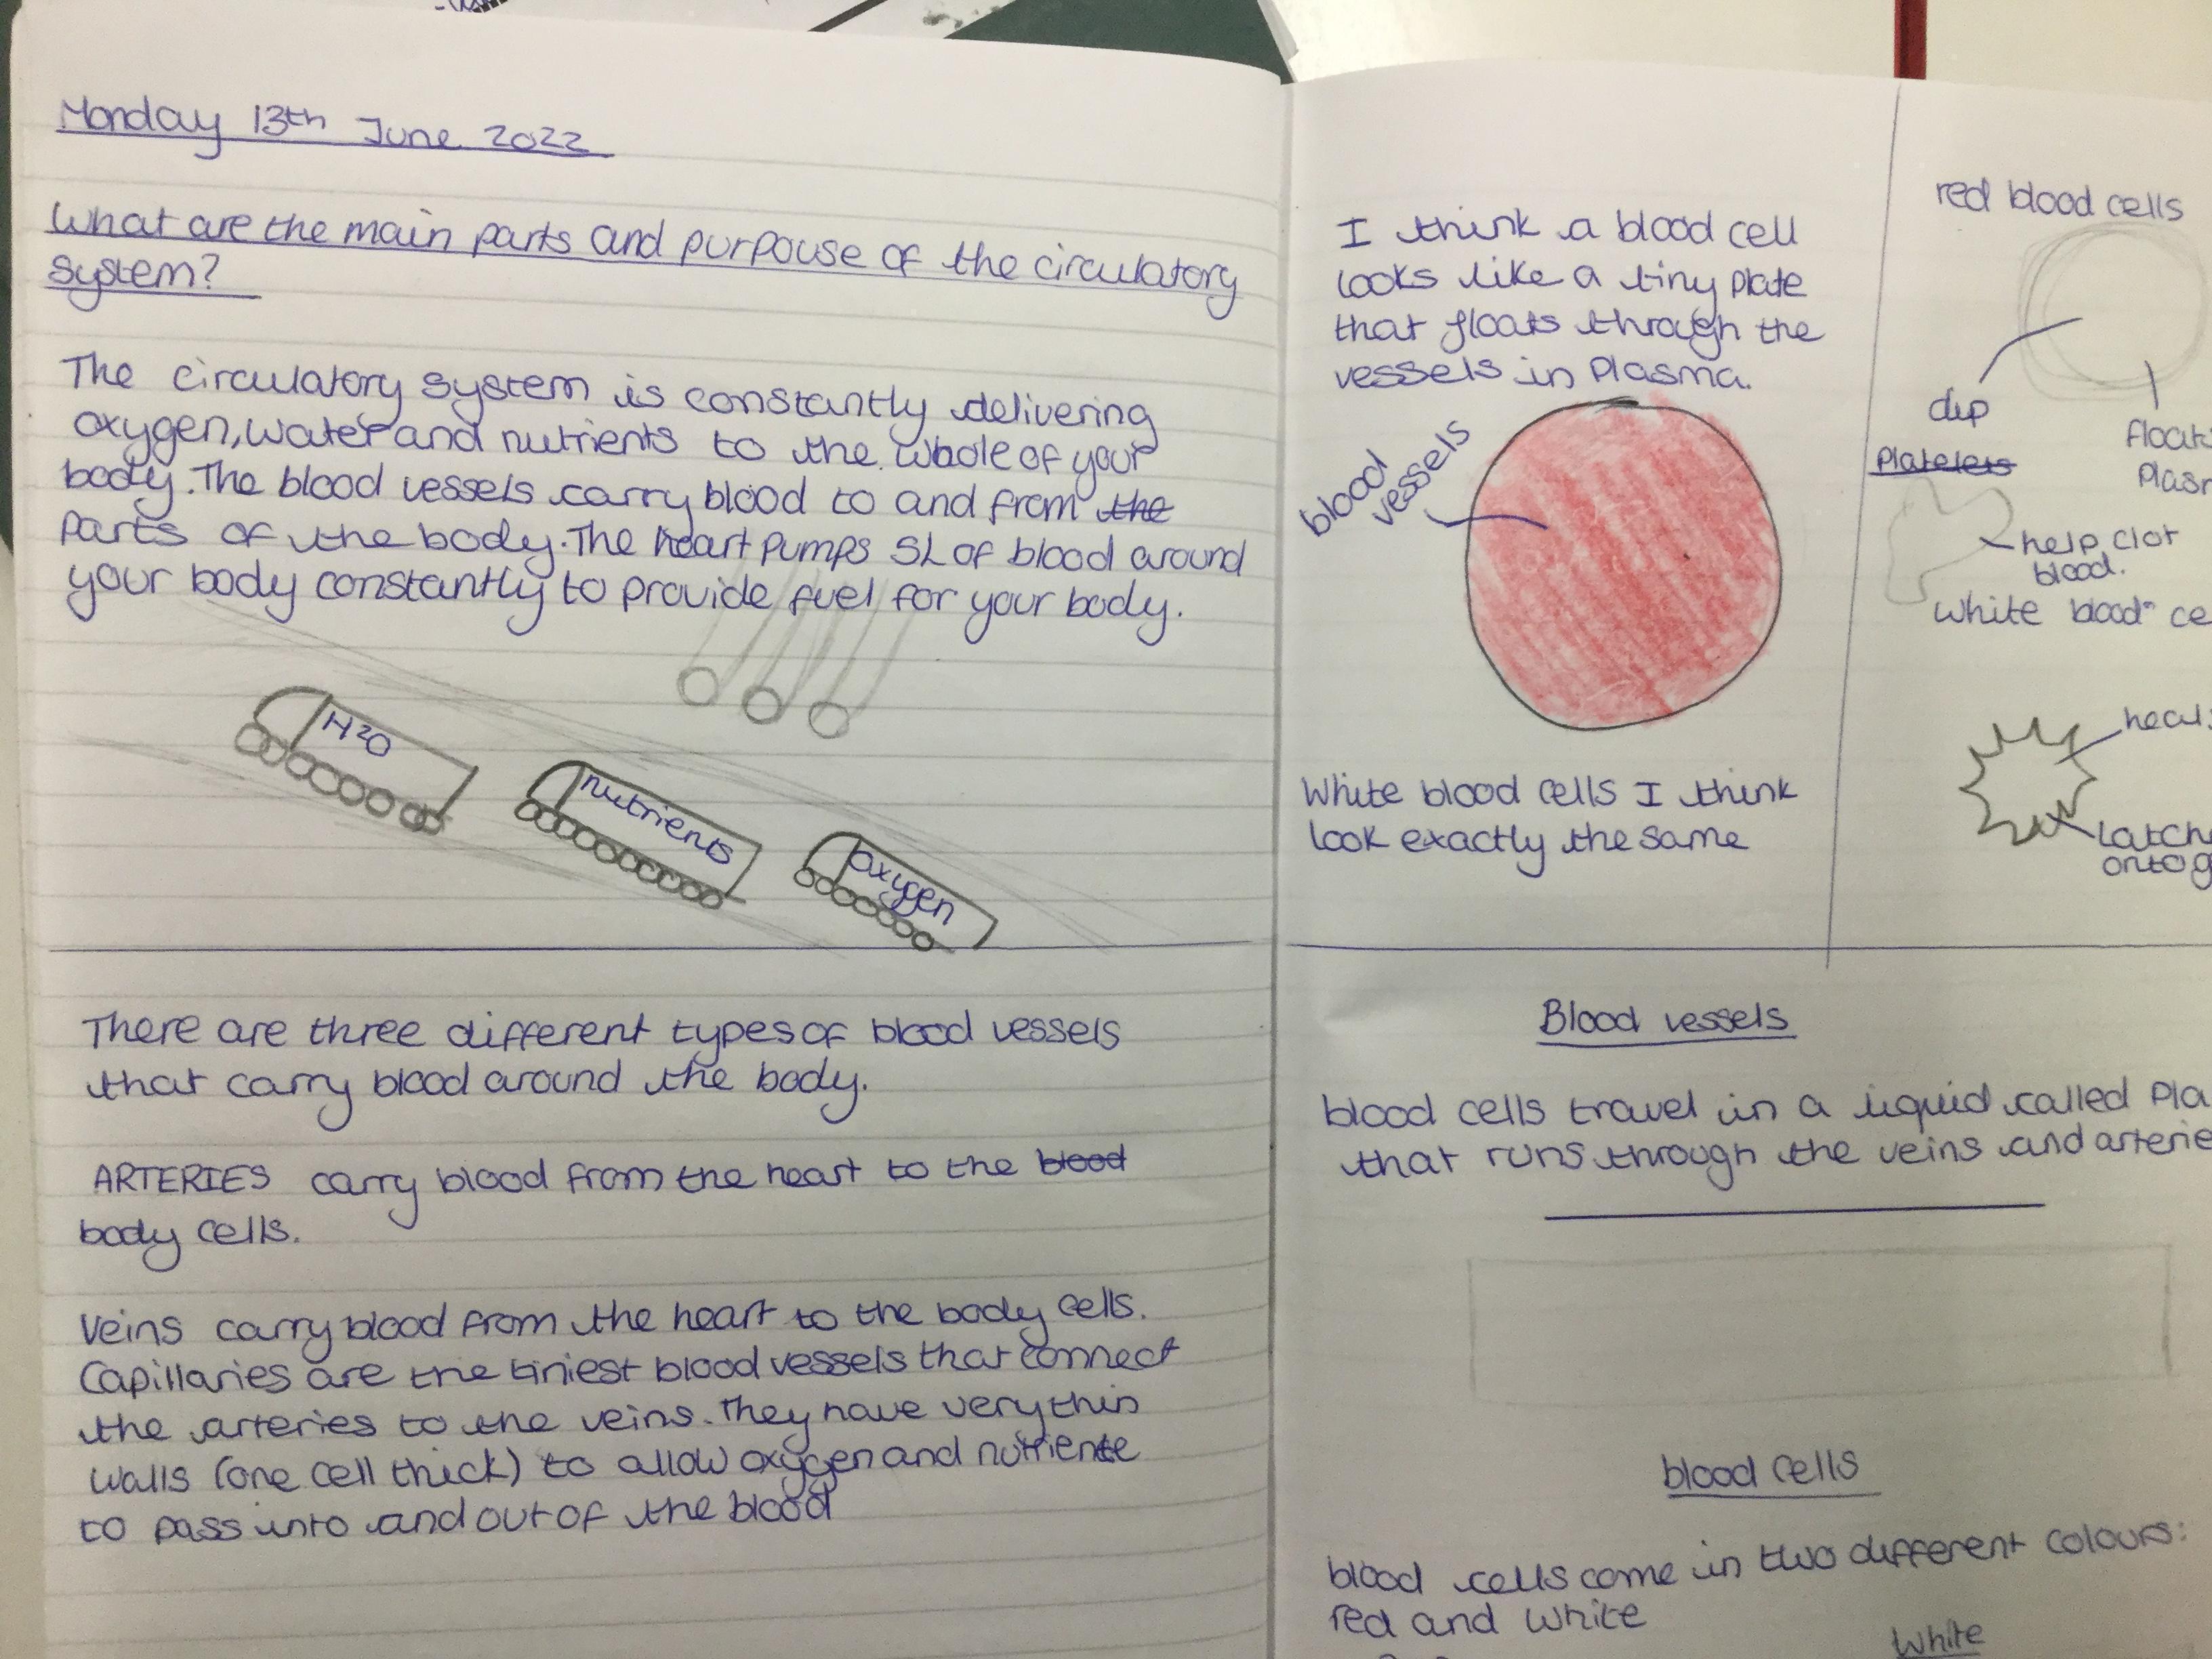 Monday 13th June 2022
What are the main parts and purpouse of the circulatory
system?
The circulatory system is constantly delivering
oxygen, water and nutrients to the whole of your
body. The blood vessels carry blood to and from the
parts of the body. The heart pumps 5L of blood around
your body constantly to provide fuel for your body.
H2O
nutrients
oxygen
There are three different types of blood vessels
that carry blood around the body.
ARTERIES carry blood from the heart to the blood
body cells.
Veins carry blood from the heart to the body cells.
Capillaries are the tiniest blood vessels that connect
the arteries to the veins. They have very thin
walls (one cell thick) to allow oxygen and
to pass into and out of the blood
I think a blood cell
looks like a tiny plate
that floats through the
vessels in plasma.
blood
vessels
White blood cells I think
look exactly the same
red blood cells
dip
Platelets
help clot
blood.
white blood ce
Blood vessels
blood cells travel in a liquid called Pla
that runs through the veins and arterie
blood cells
blood cells come in two different colours:
red and white
White